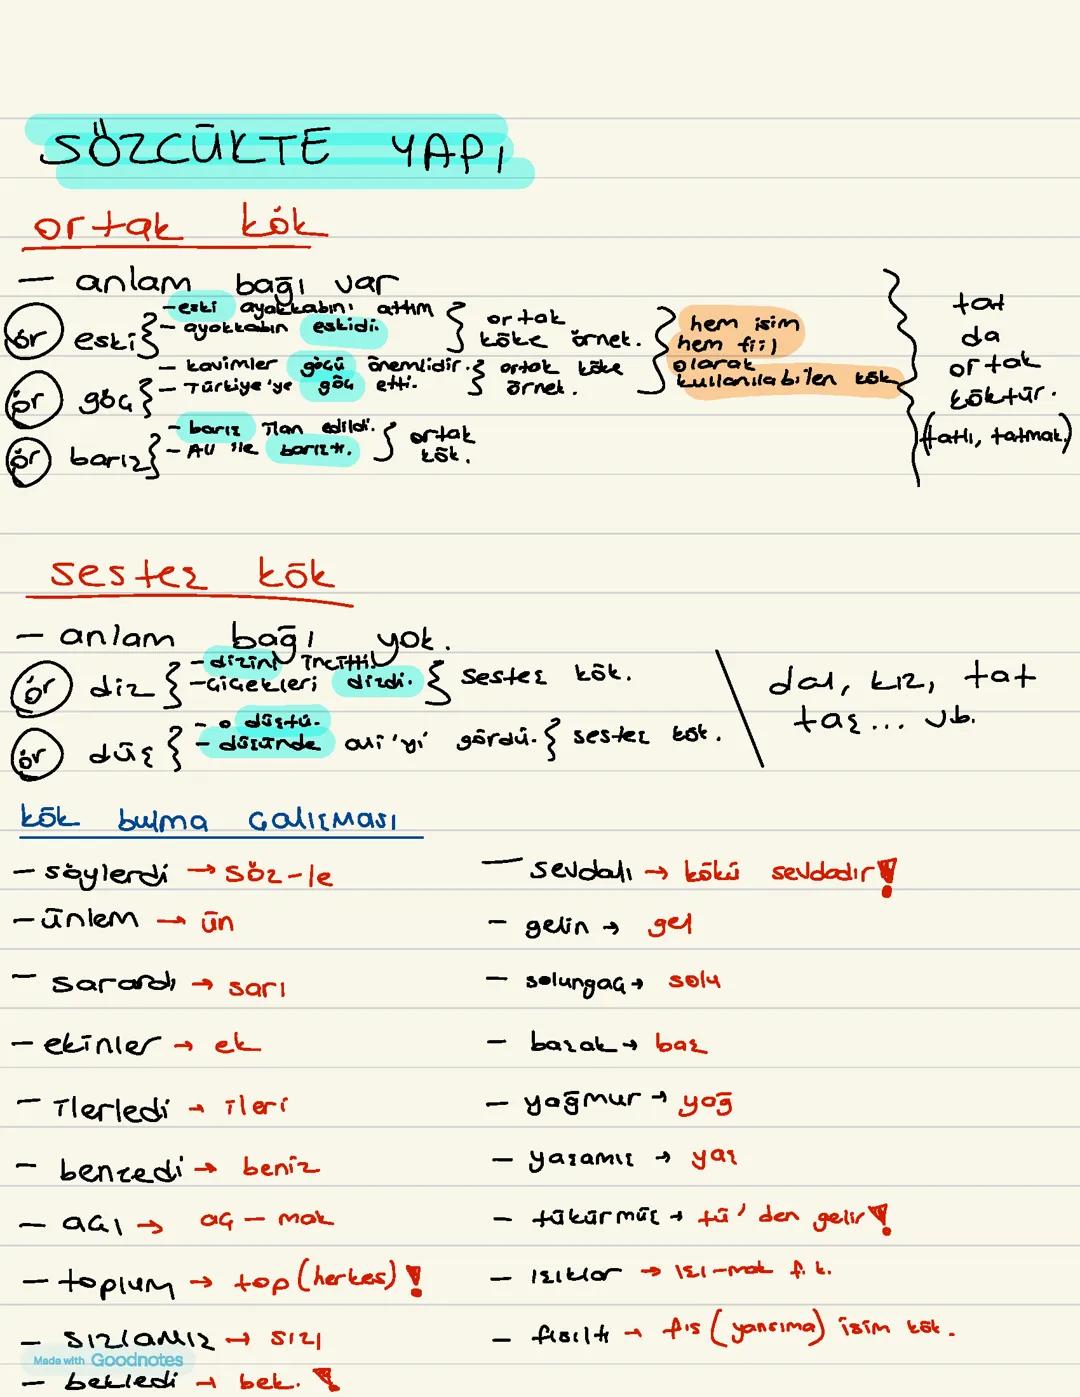 SÖZCÜKTE YAPI
ortak kök
— anlam bağı var
ör eski { - eski ayakkabını attım
- ayakkabın eskidi. } ortak köke örnek.
ör göç { - kavimler göçü önemlidir.
- Türkiye'ye göç etti. } ortak köke örnek.
} hem isim hem fiil olarak kullanılabilen kök
ör barış { - barış ilan edildi.
- Ali ile barıştı. } ortak kök.
} tat
da
ortak
köktür.
(tatlı, tatmak.)
sesteş kök
— anlam bağı yok.
ör diz { - dizini incitti.
- çiçekleri dizdi. } sesteş kök.
ör düş { - o düştü.
- düşünde Ali'yi gördü. } sesteş kök.
dal, kız, tat
taş... vb.
kök bulma çalışması
- söylerdi → söz-le
- ünlem → ün
- sarardı → sarı
- ekinler → ek
- ilerledi → ileri
- benzedi → beniz
- açı → aç - mak
- toplum → top (herkes) !
- sızlamış → sızı
- bekledi → bek. !
- sevdalı → kökü sevdadır !
- gelin → gel
- solungaç → solu
- başak → baş
- yağmur → yağ
- yaşamış → yaş
- tükürmüş → tü' den gelir !
- ışıklar → ışı-mak f. k.
- fısıltı → fıs (yansıma) isim kök.
Made with Goodnotes